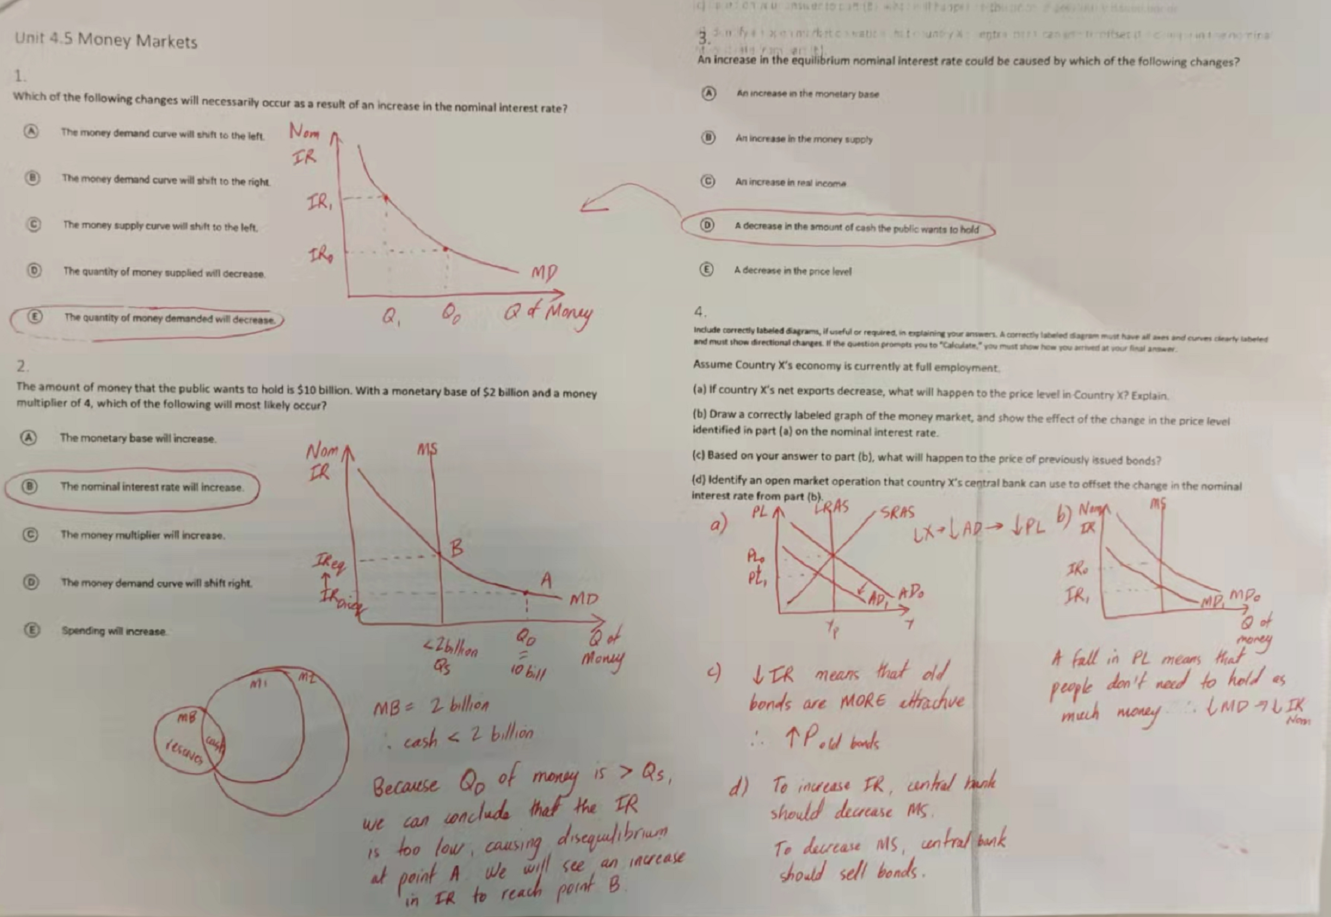 Unit 4.5 Money Markets
1.
Which of the following changes will necessarily occur as a result of an increase in the nominal interest rate?
A The money demand curve will shift to the left.
B The money demand curve will shift to the right.
C The money supply curve will shift to the left.
D The quantity of money supplied will decrease.
E The quantity of money demanded will decrease.
Nom
IR
IR₁
IR₀
MD
Q₁ Q₀ Q of Money
2.
The amount of money that the public wants to hold is $10 billion. With a monetary base of $2 billion and a money
multiplier of 4, which of the following will most likely occur?
A The monetary base will increase.
B The nominal interest rate will increase.
C The money multiplier will increase.
D The money demand curve will shift right.
E Spending will increase.
Nom
IR
MS
IReq
↑
IRDiseq
B
A
MD
<2billion
Qs
QD
=
10 bill
Q of
Money
M1 M2
MB
cash
reserves
MB = 2 billion
∴ cash < 2 billion
Because QD of money is > Qs,
we can conclude that the IR
is too low, causing disequilibrium
at point A. We will see an increase
in IR to reach point B.
3.
An increase in the equilibrium nominal interest rate could be caused by which of the following changes?
A An increase in the monetary base
B An increase in the money supply
C An increase in real income
D A decrease in the amount of cash the public wants to hold
E A decrease in the price level
4.
Include correctly labeled diagrams, if useful or required, in explaining your answers. A correctly labeled diagram must have all axes and curves clearly labeled
and must show directional changes. If the question prompts you to "Calculate," you must show how you arrived at your final answer.
Assume Country X's economy is currently at full employment.
(a) If country X's net exports decrease, what will happen to the price level in Country X? Explain.
(b) Draw a correctly labeled graph of the money market, and show the effect of the change in the price level
identified in part (a) on the nominal interest rate.
(c) Based on your answer to part (b), what will happen to the price of previously issued bonds?
(d) Identify an open market operation that country X's central bank can use to offset the change in the nominal
interest rate from part (b).
a) PL LRAS SRAS
PL₀
PL₁
AD₁ AD₀
Yp Y
↓X→↓AD→ ↓PL
b) Nom
IR
MS
IR₀
IR₁
MD₁ MD₀
Q of
money
A fall in PL means that
people don't need to hold as
much money ∴ ↓MD → ↓IR
Nom
c) ↓IR means that old
bonds are MORE attractive
∴ ↑P old bonds
d) To increase IR, central bank
should decrease MS.
To decrease MS, central bank
should sell bonds.